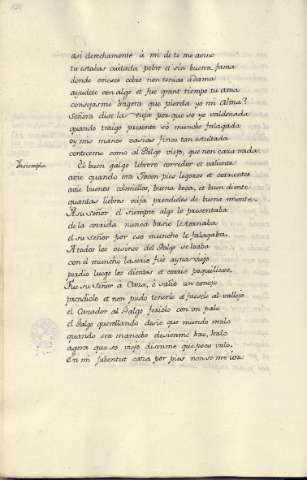 así derechamente à mi de ti me aveno
tu estabas cuitada pobre et sin buena fama
donde ovieses cobro non tenias adama
ayudete con algo et fue grant tiempo tu ama
consejasme agora que pierda yo mi alma?
Señora dixo la vieja por que so yo baldonada
quando traygo presente so mucho falagada
oy vine manos vacias finco tan
contesceme como al Galgo viejo, que non caza nada.
Enxiemplo
El buen galgo lebrero corredor et valiente
avie quando era Joven pies ligeros et corrientes
avie buenos colmillos, buena boca, et buen diente
quantas liebres veya prendielas de buena mente.
A su señor el siempre algo le presentaba
de la corrida nunca vacio le tornaba
el su señor por eso muncho le falagaba,
A todos los vecinos del Galgo se loaba
con el muncho lacerio fue ayna viejo
perdio luego los dientes et corrie poquillejo,
Fue su señor à Caza, è salio un conejo
prendiole et non pudo tenerle et fuesele al vallejo
el Cazador al Galgo firiolo con un palo
el Galgo querellando decie que mundo malo
quando era mancebo decianme hao, halo
agora que so viejo disenme que poco valo.
En mi jubentut caza por pies non se me iva